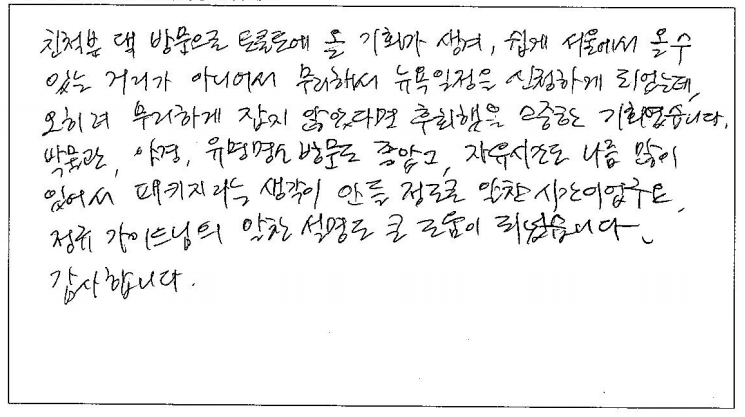 친척분 댁 방문으로 토론토에 올 기회가 생겨, 쉽게 서울에서 올 수
있는 거리가 아니어서 무리해서 뉴욕일정을 신청하게 되었는데,
오히려 무리하게 잡지 않았다면 후회했을 소중한 기회였습니다.
박물관, 야경, 유명명소 방문도 좋았고, 자유시간도 나름 많이
있어서 패키지라는 생각이 안들 정도로 알찬 시간이었구요,
가이드님의 알찬 설명도 큰 도움이 되었습니다.
감사합니다.